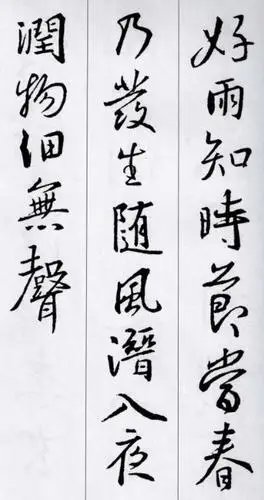 好雨知時節當春
乃發生随風潛入夜
潤物細無聲